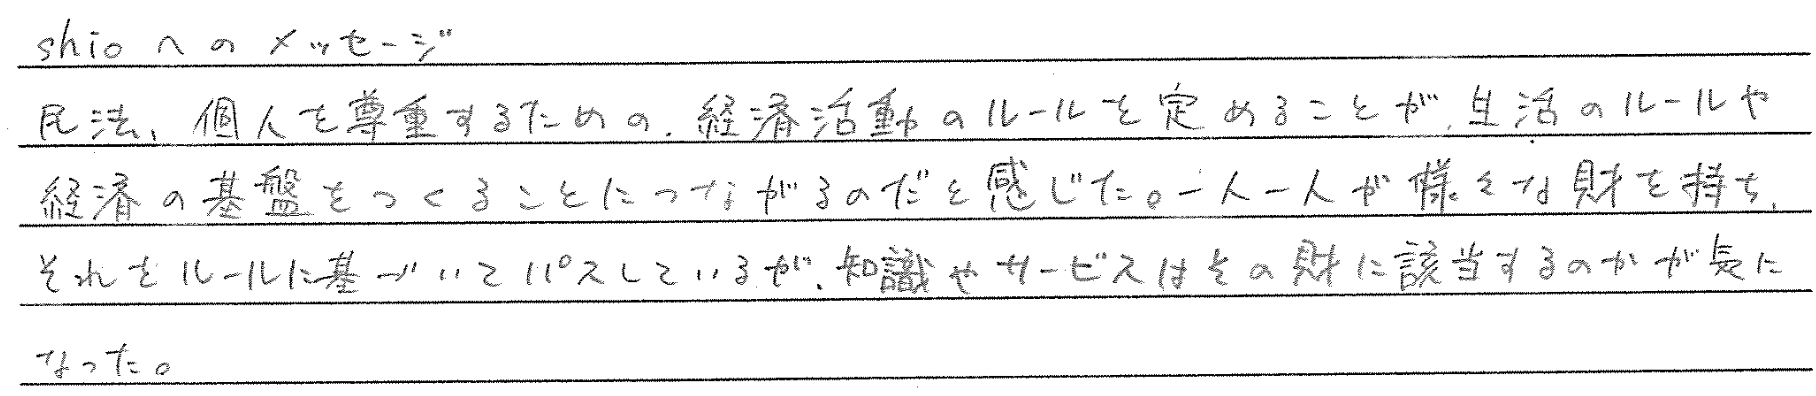 shioへのメッセージ
民法、個人を尊重するための、経済活動のルールを定めることが、生活のルールや
経済の基盤をつくることにつながるのだと感じた。一人一人が様々な財を持ち、
それをルールに基づいてパスしているが、知識やサービスはその財に該当するのかが気に
なった。